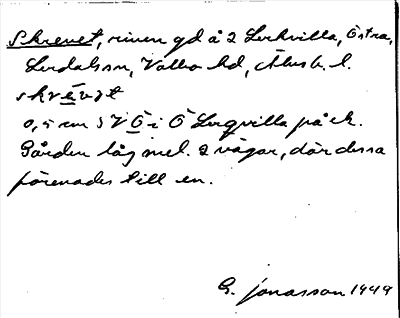 Skrevet, riven gd å 2 Lerkvilla, Östra,
Lerdalson, Valbo hd, Älvsb. l.
skrẹvət
0,5 cm SV Ö i Ö Lerqvilla på ek.
Gården låg mel. 2 vägar, där dessa
förenades till en.
G. Jonasson 1949